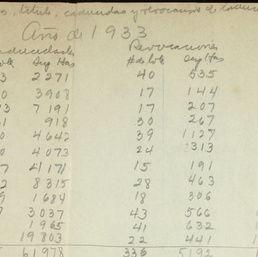 títulos, caducadas y revocación de caduc
Año de 1933
Caducidades Revocaciones
Sup Has # de lote Sup Has
3 2271 40 535
0 3908 17 144
3 7191 17 207
1 918 30 267
0 4642 39 1127
0 4073 24 313
7 4171 15 191
2 8315 28 463
9 1684 18 306
7 3037 43 566
1965 41 632
19803 22 441
61978 336 5192